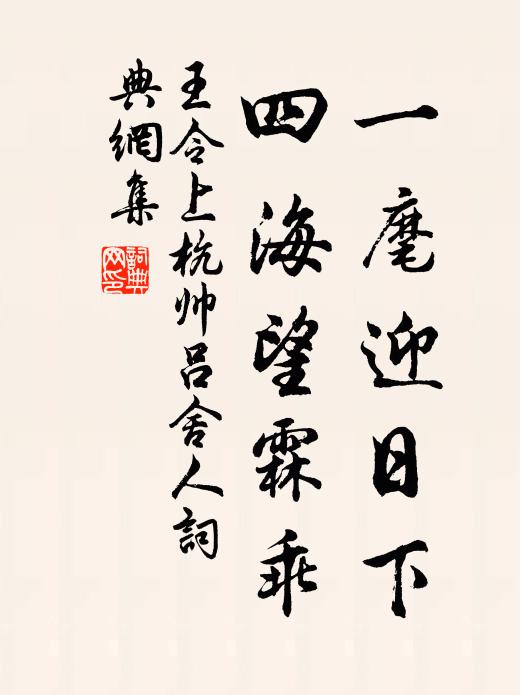 一麾迎日下
四海望霖乘
王令上杭帅吕舍人詞
典網集
詞典網印